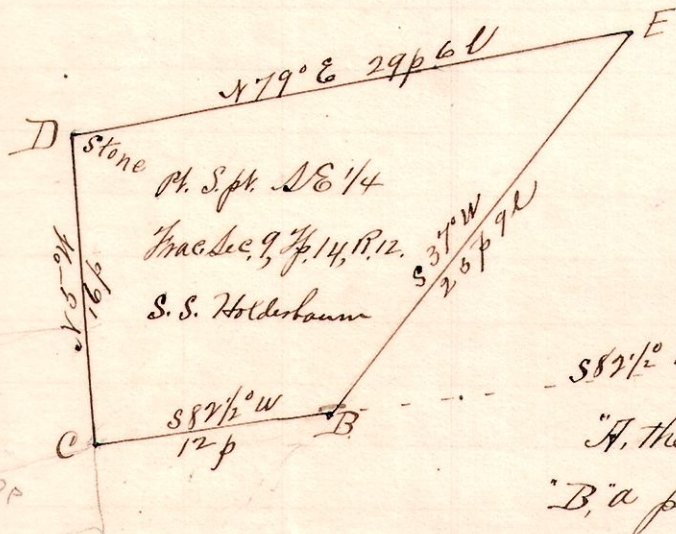 E
N 79° E 29p 6 l
D
Stone
Pt. S. pt. SE 1/4
Frac. Sec. 9, Tp. 14, R. 12.
S. S. Holderbaum
S 37° W
25 p 9 l
S 82 1/2° W
12 p
C
B
S 82 1/2°
"A, the
"B," a p